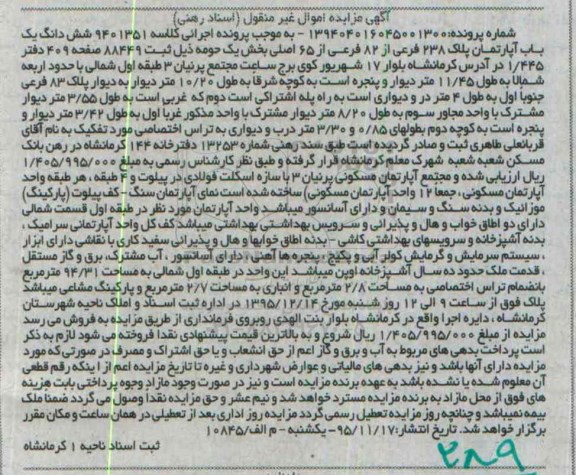 آگهی مزایده اموال غیر منقول (اسناد رهنی)
شماره پرونده: ۱۳۹۴۰۴۰۱۶۰۴۵۰۰۱۳۰۰ - به موجب پرونده اجرائی کلاسه ۹۴۰۱۳۵۱ شش دانگ یک
باب آپارتمان پلاک ۲۳۸ فرعی از ۸۲ فرعی از ۶۵ اصلی بخش یک حومه ذیل ثبت ۸۸۴۴۹ صفحه ۴۰۹ دفتر
۱/۴۴۵ در آدرس کرمانشاه بلوار ۱۷ شهریور کوی برج ساعت مجتمع پرنیان ۳ طبقه اول شمالی با حدود اربعه
شمالا به طول ۱۱/۴۵ متر دیوار و پنجره است به کوچه شرقا به طول ۱۰/۲۰ متر دیوار به دیوار پلاک ۸۳ فرعی
جنوبا اول به طول ۴ متر در و دیواری است به راه پله اشتراکی است دوم که غربی است به طول ۳/۵۵ متر دیوار
مشترک با واحد مجاور سوم به طول ۸/۲۰ متر دیوار مشترک با واحد مذکور غربا اول به طول ۳/۴۲ متر دیوار و
پنجره است به کوچه دوم بطولهای ۰/۸۵ و ۳/۳۰ متر درب و دیواری به تراس اختصاصی مورد تفکیک به نام آقای
قربانعلی طاهری ثبت و صادر گردیده است طبق سند رهنی شماره ۱۳۲۵۳ دفترخانه ۱۴۴ کرمانشاه در رهن بانک
مسکن شعبه شعبه شهرک معلم کرمانشاه قرار گرفته و طبق نظر کارشناس رسمی به مبلغ ۱/۴۰۵/۹۹۵/۰۰۰
ریال ارزیابی شده و مجتمع آپارتمان مسکونی پرنیان ۳ با سازه اسکلت فولادی در پیلوت و ۴ طبقه ، هر طبقه واحد
آپارتمان مسکونی ، جمعا ۱۲ واحد آپارتمان مسکونی) ساخته شده است نمای آپارتمان سنگ - کف پیلوت (پارکینگ)
موزائیک و بدنه سنگ و سیمان و دارای آسانسور میباشد واحد آپارتمان مورد نظر در طبقه اول قسمت شمالی
دارای دو اطاق خواب و هال و پذیرائی و سرویس بهداشتی بهداشتی میباشد کف کل واحد آپارتمانی سرامیک ،
بدنه آشپزخانه و سرویسهای بهداشتی کاشی - بدنه اطاق خوابها و هال و پذیرائی سفید کاری با نقاشی دارای ابزار
، سیستم سرمایش و گرمایش کولر آبی و پکیج ، پنجره ها آهنی ، دارای آسانسور ، آب مشترک، برق و گاز مستقل
، قدمت ملک حدود ده سال آشپزخانه اوپن میباشد این واحد در طبقه اول شمالی به مساحت ۹۴/۳۱ مترمربع
بانضمام تراس اختصاصی به مساحت ۲/۸ مترمربع و انباری به مساحت ۲/۷ مترمربع و پارکینگ مشاعی میباشد
پلاک فوق از ساعت ۹ الی ۱۲ روز شنبه مورخ ۱۳۹۵/۱۲/۱۴ در اداره ثبت اسناد و املاک ناحیه شهرستان
کرمانشاه ، دایره اجرا واقع در کرمانشاه بلوار بنت الهدی روبروی فرمانداری از طریق مزایده به فروش می رسد
مزایده از مبلغ ۱/۴۰۵/۹۹۵/۰۰۰ ریال شروع و به بالاترین قیمت پیشنهادی نقدا فروخته می شود لازم به ذکر
است پرداخت بدهی های مربوط به آب و برق و گاز اعم از حق انشعاب و یا حق اشتراک و مصرف در صورتی که مورد
مزایده دارای آنها باشد و نیز بدهی های مالیاتی و عوارض شهرداری و غیره تا تاریخ مزایده اعم از اینکه رقم قطعی
آن معلوم شده یا نشده باشد به عهده برنده مزایده است و نیز در صورت وجود مازاد وجوه پرداختی بابت هزینه
های فوق از محل مازاد به برنده مزایده مسترد خواهد شد و نیم عشر و حق مزایده نقدا وصول می گردد ضمنا ملک
بیمه نمیباشد و چنانچه روز مزایده تعطیل رسمی گردد مزایده روز اداری بعد از تعطیلی در همان ساعت و مکان مقرر
برگزار خواهد شد. تاریخ انتشار: ۹۵/۱۱/۱۷- یکشنبه - م الف/۱۰۸۴۵
ثبت اسناد ناحیه ۱ کرمانشاه
۲۸۹